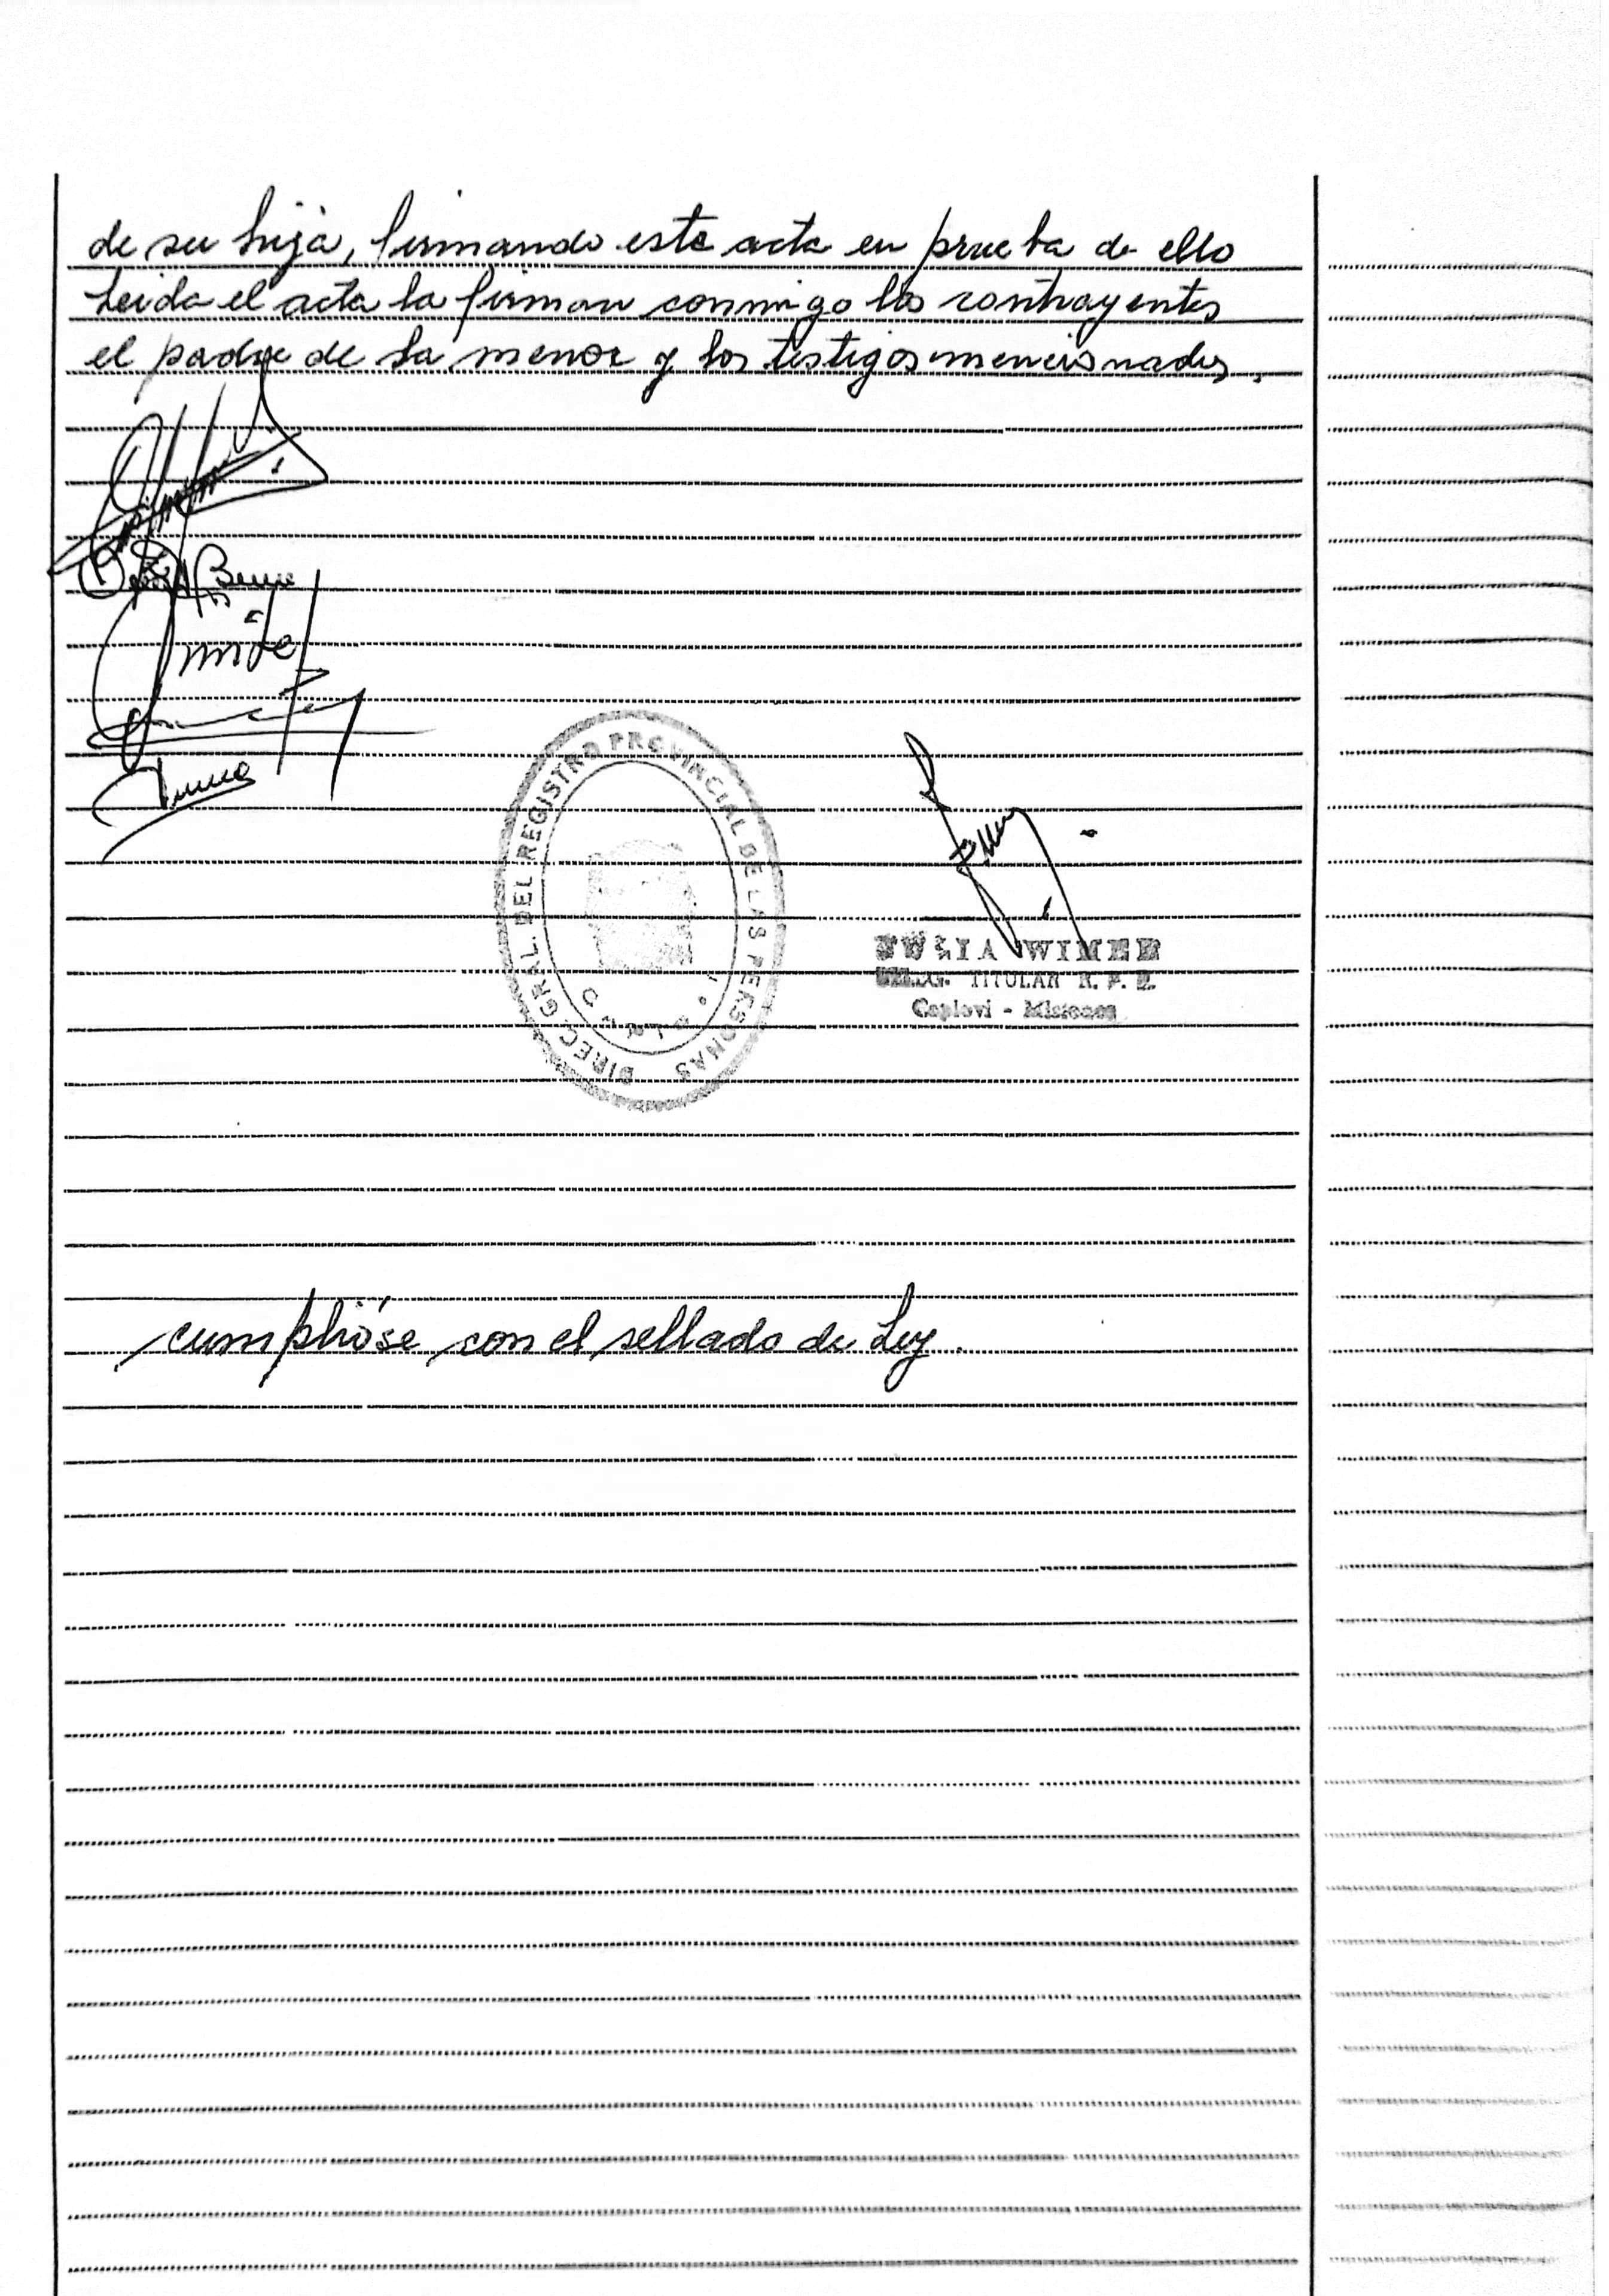 de su hija, firmando este acta en prueba de ello
Leida el acta la firman conmigo los contrayentes
el padre de la menor y los testigos mencionados.
DIREC. GRAL. DEL REGISTRO PROVINCIAL DE LAS PERSONAS
WIMER
TITULAR R. P. P.
Capiovi - Misiones
cumplióse con el sellado de Ley.